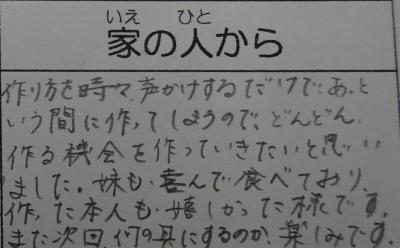 いえ ひと
家の人から
作り方を時々声かけするだけで、あっと
いう間に作ってしまうので、どんどん
作る機会を作っていきたいと思い
ました。妹も喜んで食べており、
作った本人も嬉しかった様です。
また次回、何の具にするのか、楽しみです。